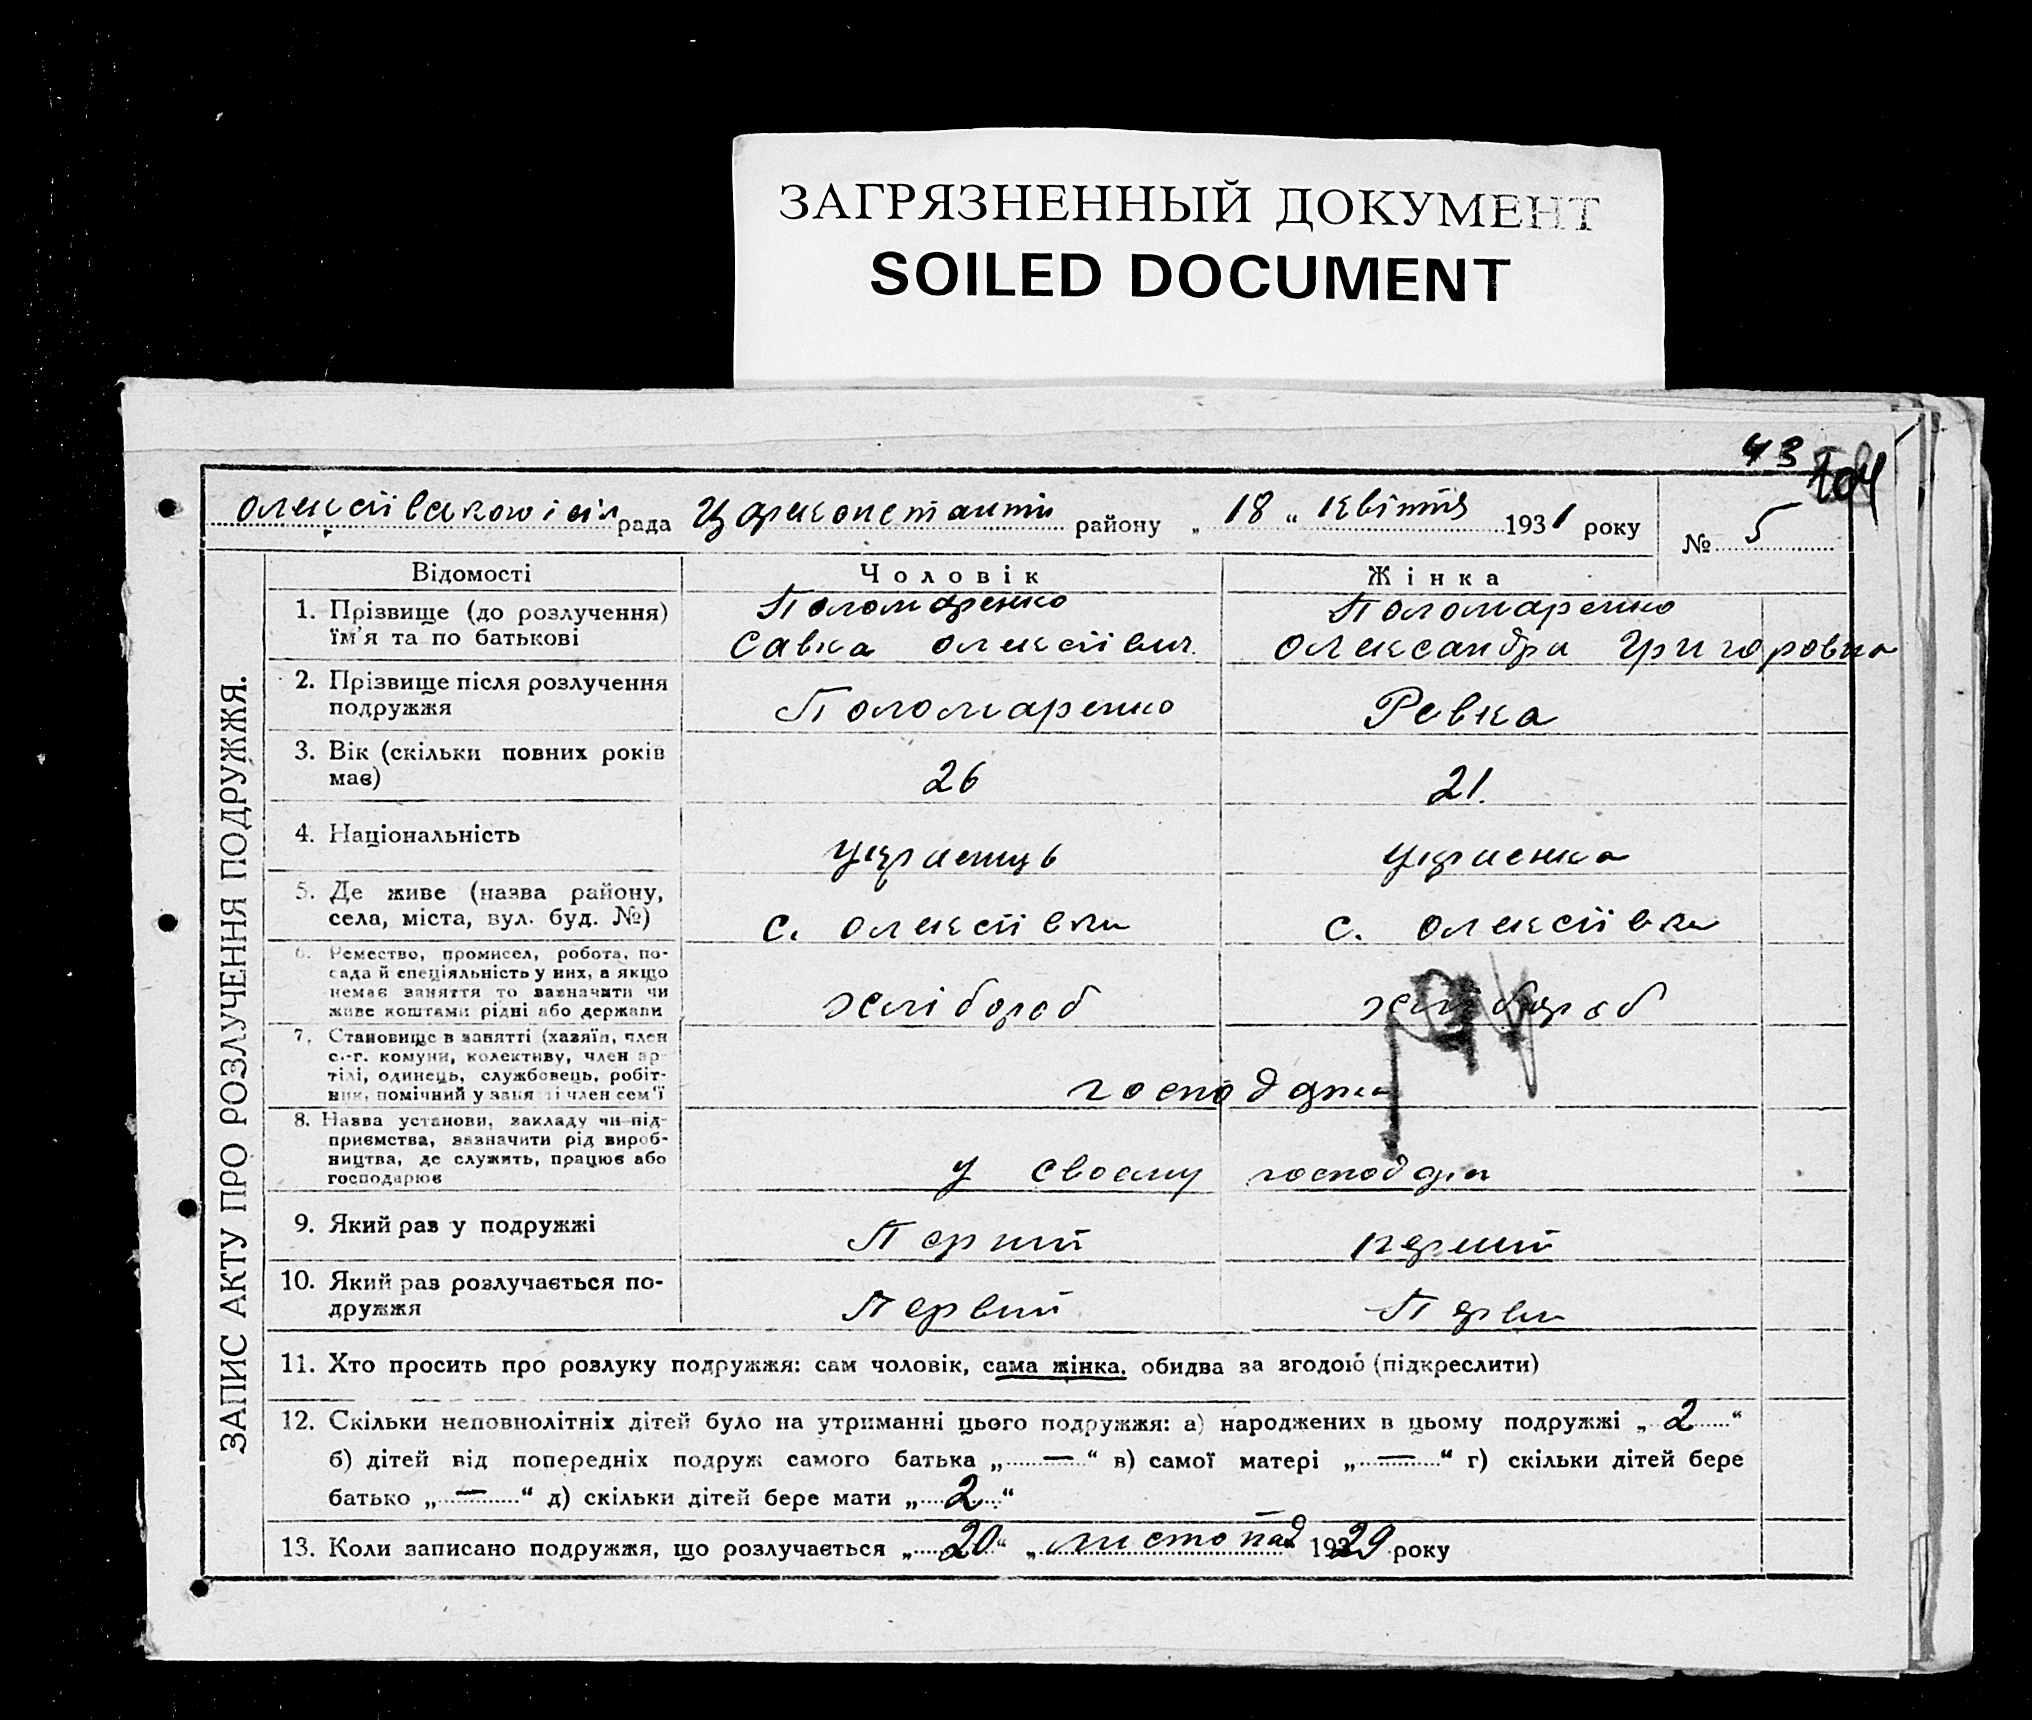 ЗАГРЯЗНЕННЫЙ ДОКУМЕНТ
SOILED DOCUMENT
43
рада района
Олексіївской сіл рада Цареконстанти району „ 18 “ квітня 1931 року
№ 5
ЗАПИС АКТУ ПРО РОЗЛУЧЕННЯ ПОДРУЖЖЯ.
Відомості Чоловік Жінка
1. Прізвище (до розлучення) Поломаренко Поломаренко
їм'я та по батькові Савка Олексіївич Олександра Григоровна
2. Прізвище після розлучення
подружжя Поломаренко Ревка
3. Вік (скільки повних років
має) 26 21.
4. Національність Українець Українка
5. Де живе (назва району,
села, міста, вул. буд. №) с. Олексіївки с. Олексіївки
6. Ремество, промисел, робота, по-
сада й спеціяльність у них, а якщо
немає заняття то зазначити чи
живе коштами рідні або держави хлібороб хлібороб
7. Становище в занятті (хазяїн, член
с.-г. комуни, колективу, член ар-
тілі, одинець, службовець, робіт-
ник, помічний у занятті член сем'ї господари
8. Назва установи, закладу чи під-
приємства, зазначити рід вироб-
ництва, де служить, працює або
господарює у своєму господар
9. Який раз у подружжі Перший перший
10. Який раз розлучається по-
дружжя Первий Перви
11. Хто просить про розлуку подружжя: сам чоловік, сама жінка, обидва за згодою (підкреслити)
12. Скільки неповнолітніх дітей було на утриманні цього подружжя: а) народжених в цьому подружжі „ 2 “
б) дітей від попередніх подруж самого батька „ — “ в) самої матері „ — “ г) скільки дітей бере
батько „ — “ д) скільки дітей бере мати „ 2 “
13. Коли записано подружжя, що розлучається „ 20 “ „ листопад 1929 року